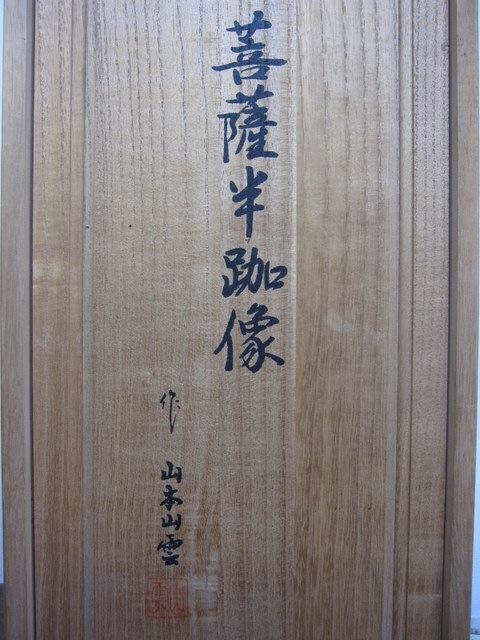 菩薩半跏像
作 山本山雲